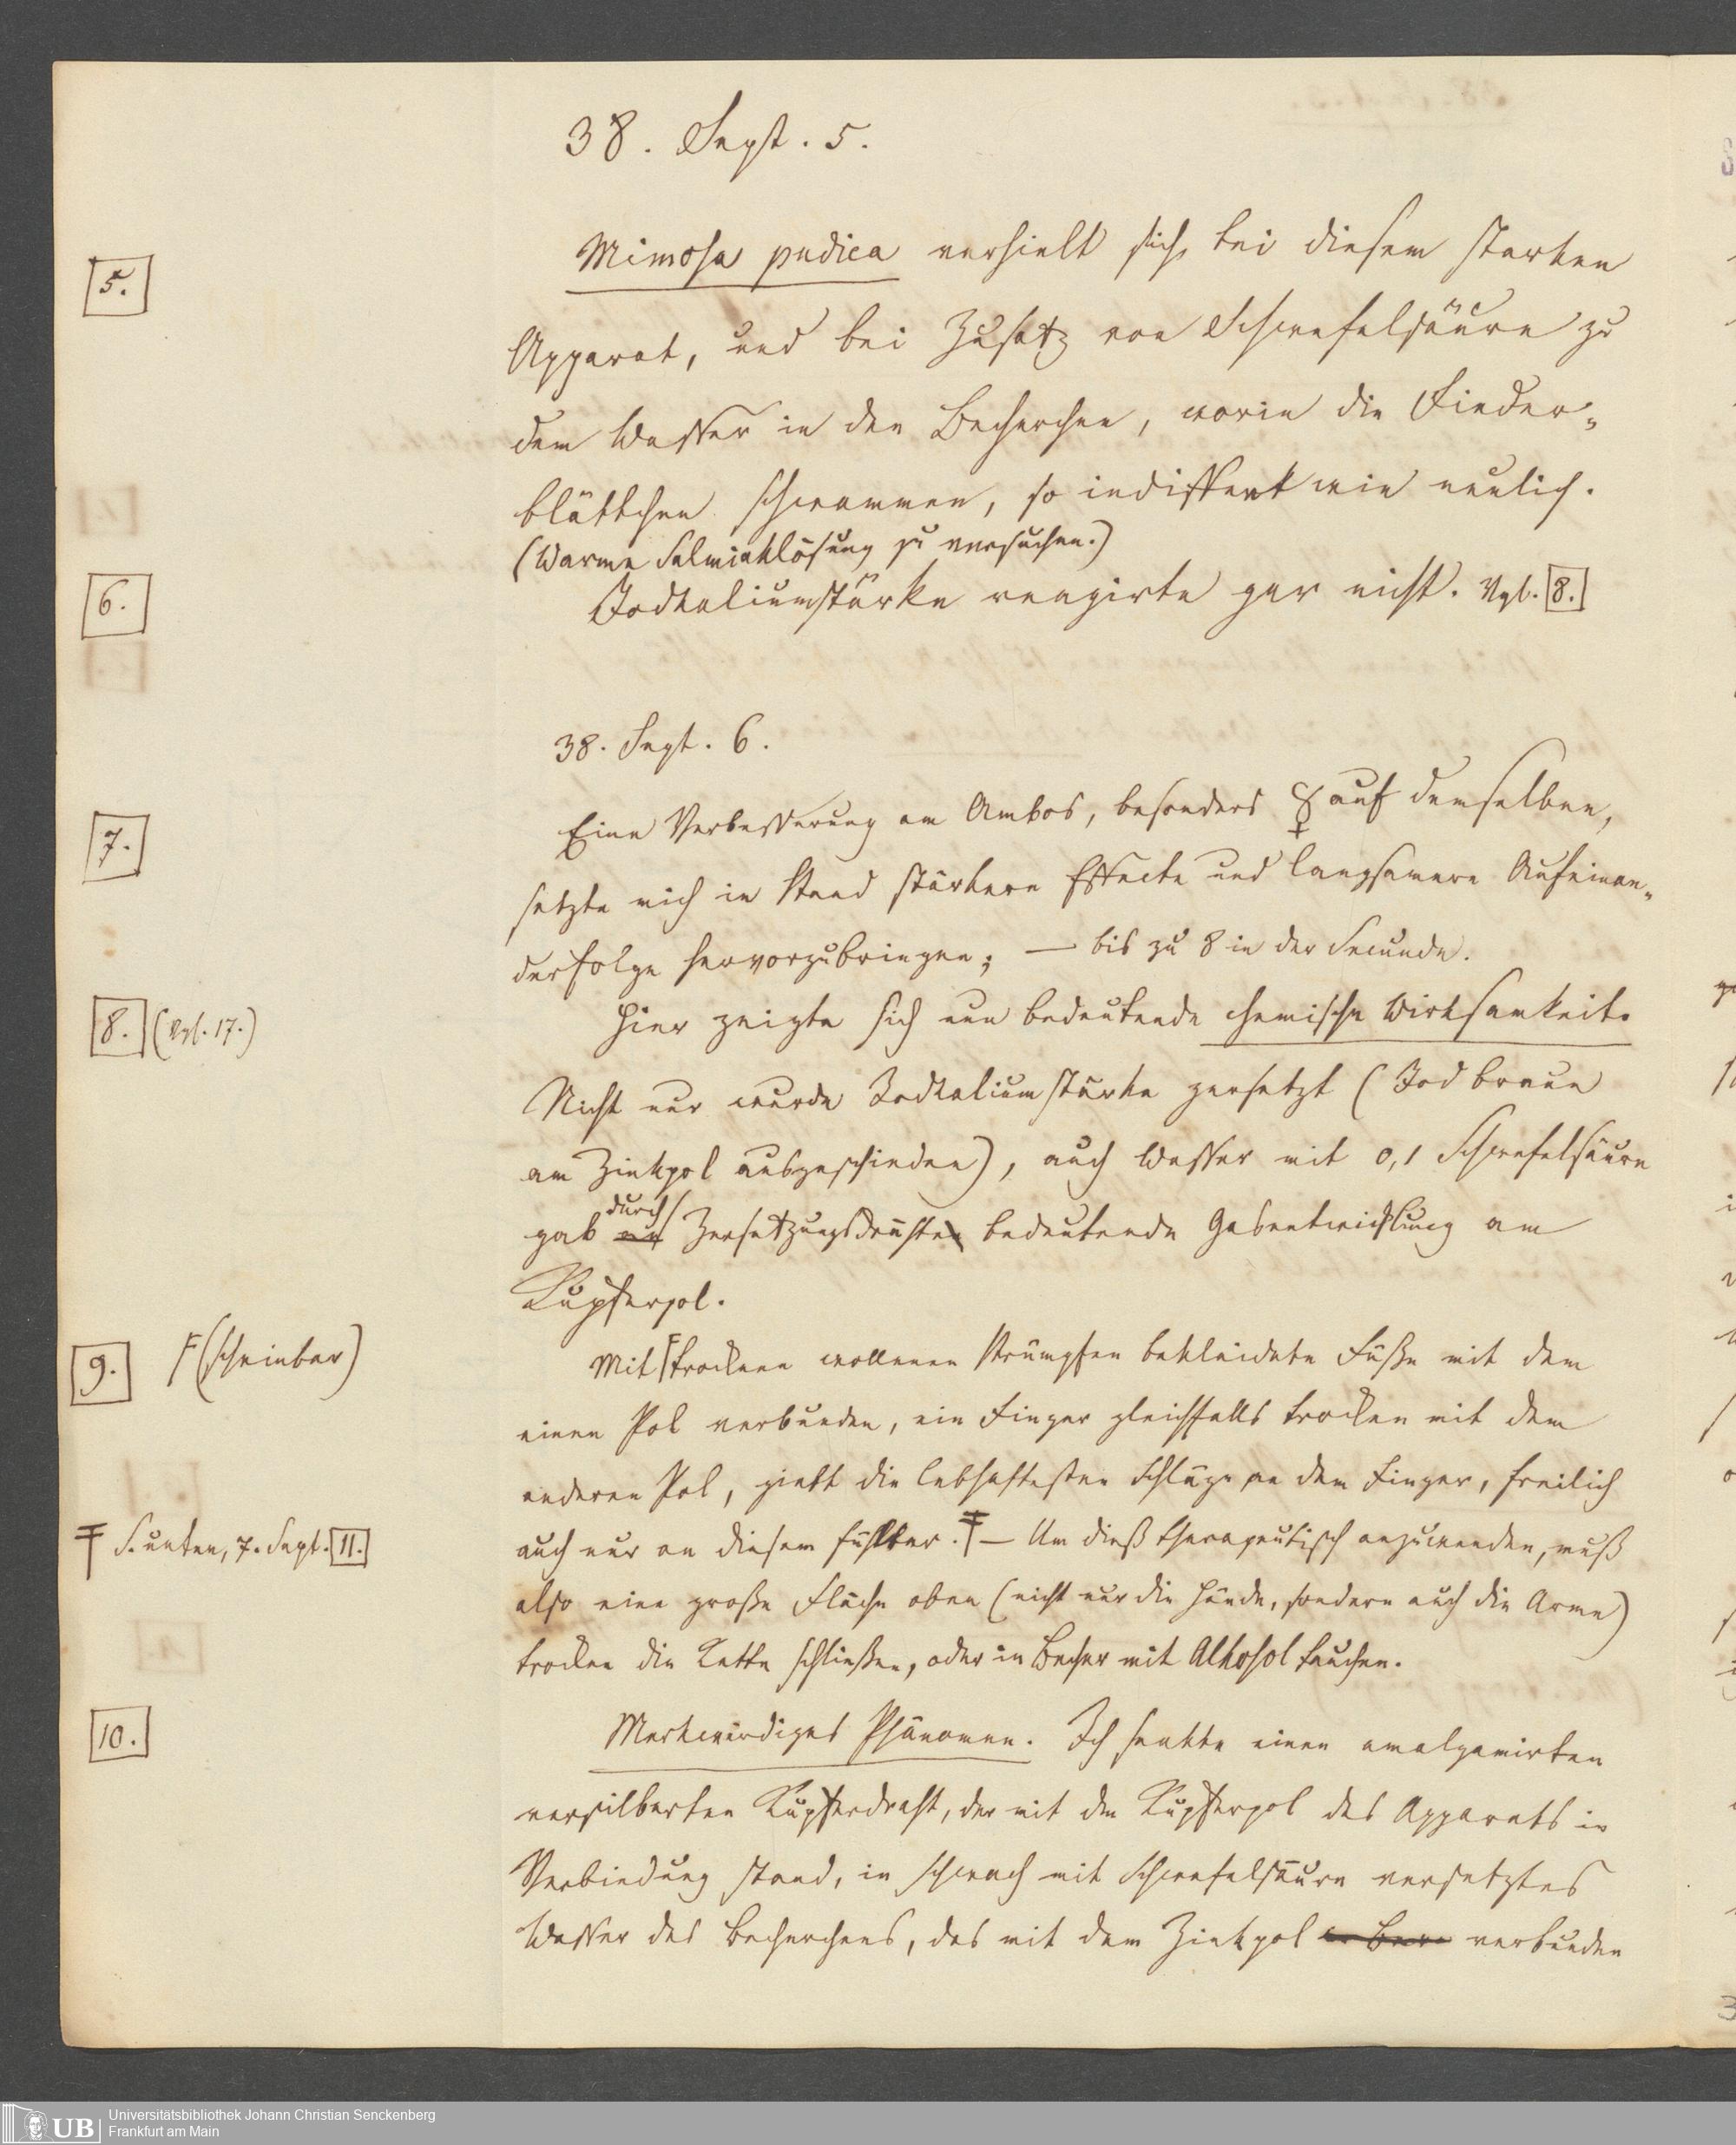 38. Sept. 5.
5.
Mimosa pudica verhielt sich bei diesem starken
Apparat, und bei Zusatz von Schwefelsäure zu
dem Wasser in den Becherchen, worin die Fieder-
blättchen schwammen, so indifferent wie neulich.
(Warme Salmiaklösung zu versuchen.)
6.
Jodkaliumstärke reagirte gar nicht. Vgl. 8.
38. Sept. 6.
7.
Eine Verbesserung am Ambos, besonders ☿ auf demselben,
setzte mich in Stand stärkere Effecte und langsamere Aufeinan-
derfolge hervorzubringen; — bis zu 8 in der Secunde.
8. (Vgl. 17.)
Hier zeigte sich nun bedeutende chemische Wirksamkeit.
Nicht nur wurde Jodkaliumstärke zersetzt (Jod braun
am Zinkpol ausgeschieden), auch Wasser mit 0,1 Schwefelsäure
durch
gab Zersetzungsdräthe bedeutende Gasentwicklung am
Kupferpol.
9. F (scheinbar)
Mit F trocknen wollenen Strümpfen bekleidete Füße mit dem
einen Pol verbunden, ein Finger gleichfalls trocken mit dem
anderen Pol, giebt die lebhaftesten Schläge an dem Finger, freilich
auch nur an diesem fühlbar. ŧ — Um dieß therapeutisch anzuwenden, muß
ŧ S. unten, 7. Sept. 11.
also eine große Fläche oben (nicht nur die Hände, sondern auch die Arme)
trocken die Kette schließen, oder in Becher mit Alkohol tauchen.
10.
Merkwürdiges Phänomen. Ich senkte einen amalgamirten
versilberten Kupferdraht, der mit dem Kupferpol des Apparats in
Verbindung stand, in schwach mit Schwefelsäure versetztes
Wasser des Becherchens, das mit dem Zinkpol verbunden
Universitätsbibliothek Johann Christian Senckenberg
UB Frankfurt am Main